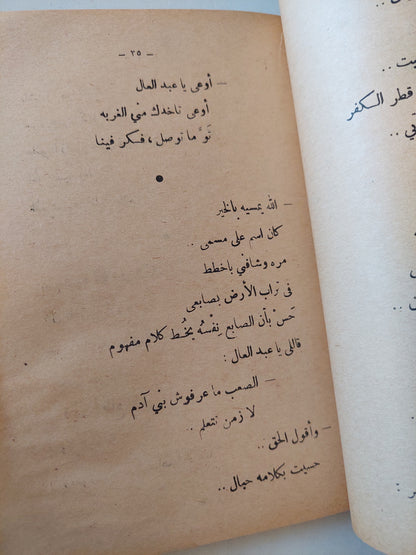 - ٣٥ -
— أوعى يا عبد العال
أوعى تاخدك مني الغربه
نَوَّ ما توصل ، فسكر فينا
●
— الله يمسيه بالخير
كان اسم على مسمى ..
مره وشافني باخطط
فى تراب الأرض بصابعى
حَسْ بأن الصابع نِفْسُه يخُط كلام مفهوم
قاللى يا عبد العال :
— الصعب ما عرفوش بني آدم
لا زمن نتعلم .
— وأقول الحق ..
حسيت بكلامه حبال ..
ال ..
يت ..
قطر السكفر
بي ..
ر :